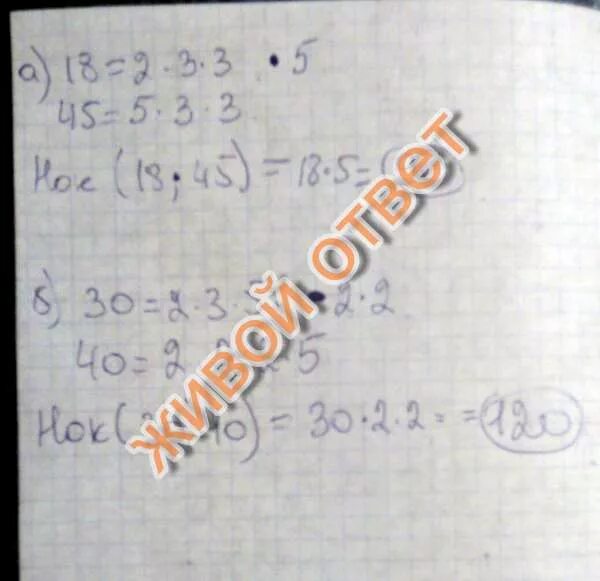 а) 18 = 2 · 3 · 3 · 5
45 = 5 · 3 · 3
Нок (18; 45) = 18 · 5 =
б) 30 = 2 · 3 · · 2 · 2
40 = 2 · 5
Нок ( 40) = 30 · 2 · 2 = = 120
ЖИВОЙ ОТВЕТ